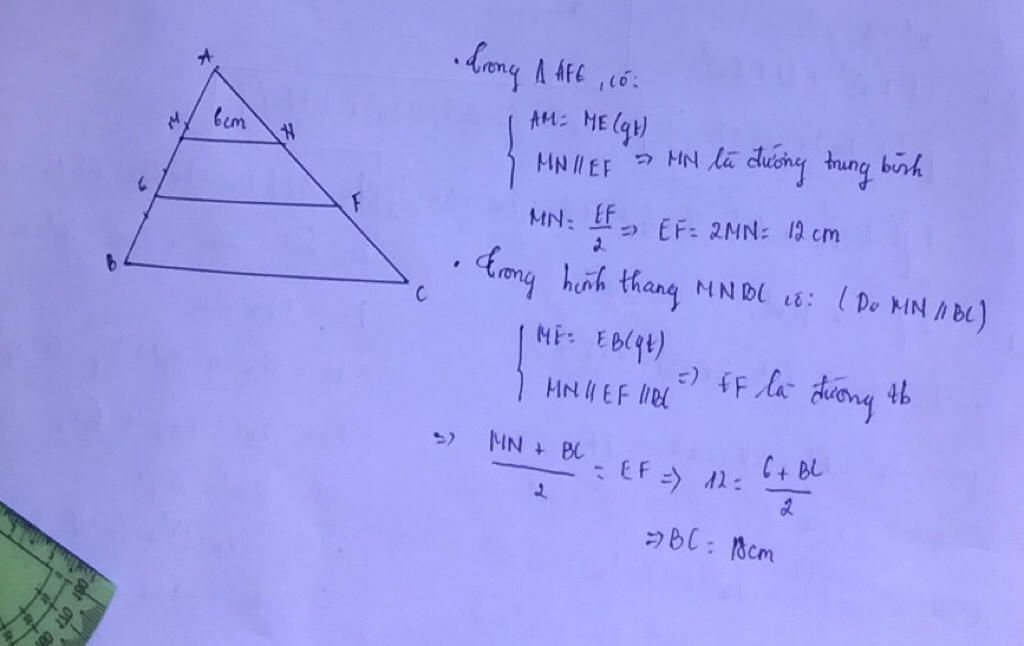 A
M
6cm
N
E
F
B
C
• Trong Δ AFE, có:
AM = ME (gt)
MN // EF => MN là đường trung bình
MN = EF/2 => EF = 2MN = 12 cm
• Trong hình thang MNBC có: (Do MN // BC)
ME = EB (gt)
MN // EF // BC => EF là đường tb
=> (MN + BC)/2 = EF => 12 = (6 + BC)/2
=> BC = 18cm
180
170
160